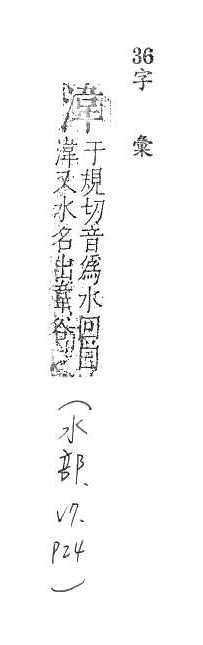 36字彙
潿
于規切音爲水回曰
潿又水名出葦谷
(水部、
V7、
P24)